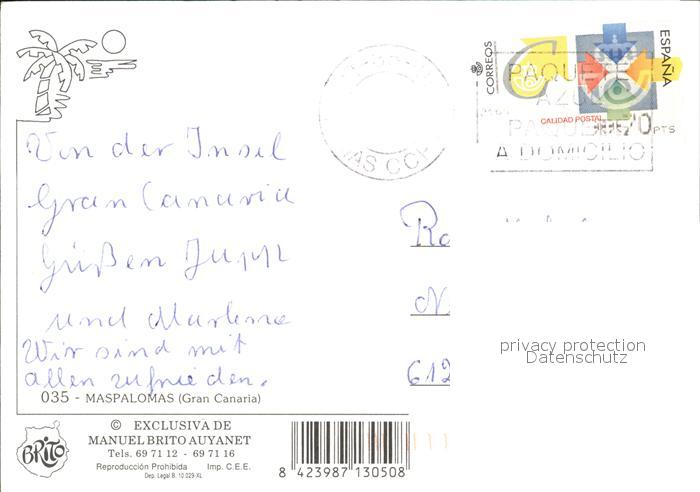 CORREOS
ESPAÑA
PAQUE
AZUL
CALIDAD POSTAL
PTS
A DOMICILIO
Von der Insel
Gran Canaria
Grüßen Jupp
und Marlene
Wir sind mit
allen zufrieden.
Ro
N
612
privacy protection
Datenschutz
035 - MASPALOMAS (Gran Canaria)
BRITO
© EXCLUSIVA DE
MANUEL BRITO AUYANET
Tels. 69 71 12 - 69 71 16
Reproducción Prohibida Imp. C.E.E.
Dep. Legal B. 10 029-XL
8 423987 130508